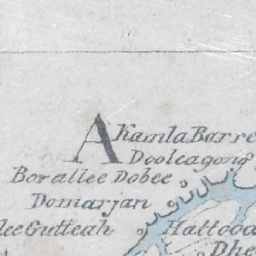 A
Kamla Barre
Dooleagong
Borallee Dobee
Domarjan
lee Gutteah Hattooa
Dhe